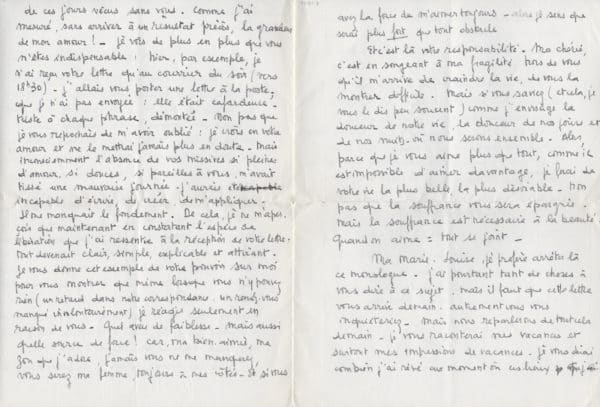 de ces jours vécus sans vous. Comme j'ai
mesuré, sans arriver à un résultat précis, la grandeur
de mon amour ! - je vois de plus en plus que vous
m'êtes indispensable ! Hier, par exemple, je
n'ai reçu votre lettre qu'au courrier du soir (vers
18h30) . j'allais vous porter une lettre à la poste,
que je n'ai pas envoyée : elle était cafardeuse -
triste à chaque phrase, démontée - Non pas que
je vous reprochais de m'avoir oublié : je crois en votre
amour et ne le mettrai jamais plus en doute - Mais
inconsciemment l'absence de vos missives si pleines
d'amour, si douces, si pareilles à vous, m'avait
tissé une mauvaise journée - j'aurais été
incapable d'écrire, de créer, de m'appliquer.
Il me manquait le fondement. De cela, je ne m'aper-
çois que maintenant en constatant l'espèce de
libération que j'ai ressentie à la réception de votre lettre -
tout devenait clair, simple, explicable et attirant.
Je vous donne cet exemple de votre pouvoir sur moi
pour vous montrer que même lorsque vous n'y pouvez
rien (un retard dans notre correspondance - un rendez-vous
manqué involontairement) je réagis seulement en
raison de vous - Quel aveu de faiblesse - Mais aussi
quelle source de force ! Car, ma bien-aimée, ma
Zou que j'adore, jamais vous ne me manquerez,
vous serez ma femme, toujours à mes côtés - et si vous
avez la force de m'aimer toujours - alors je sens que
serai plus fort que tout obstacle
Et c'est là votre responsabilité - Ma chérie,
c'est en songeant à ma fragilité hors de vous
qu'il m'arrive de craindre la vie, de vous la
montrer difficile - Mais si vous saviez (et cela, je
vous le dis peu souvent) comme j'envisage la
douceur de notre vie, la douceur de nos jours et
de nos nuits où nous serons ensemble -
parce que je vous aime plus que tout, comme il
est impossible d'aimer davantage, je ferai de
votre vie la plus belle, la plus désirable - Non
pas que la souffrance vous sera épargnée -
Mais la souffrance est nécessaire à la beauté -
Quand on aime = tout se joint -
Ma Marie-Louise, je préfère arrêter là
ce monologue - j'ai pourtant tant de choses à
vous dire à ce sujet, mais il faut que cette lettre
vous arrive demain - autrement vous vous
inquiéterez - Mais nous reparlerons de tout cela
demain - je vous raconterai mes vacances et
surtout mes impressions de vacances - je vous dirai
combien j'ai rêvé au moment où ces lieux